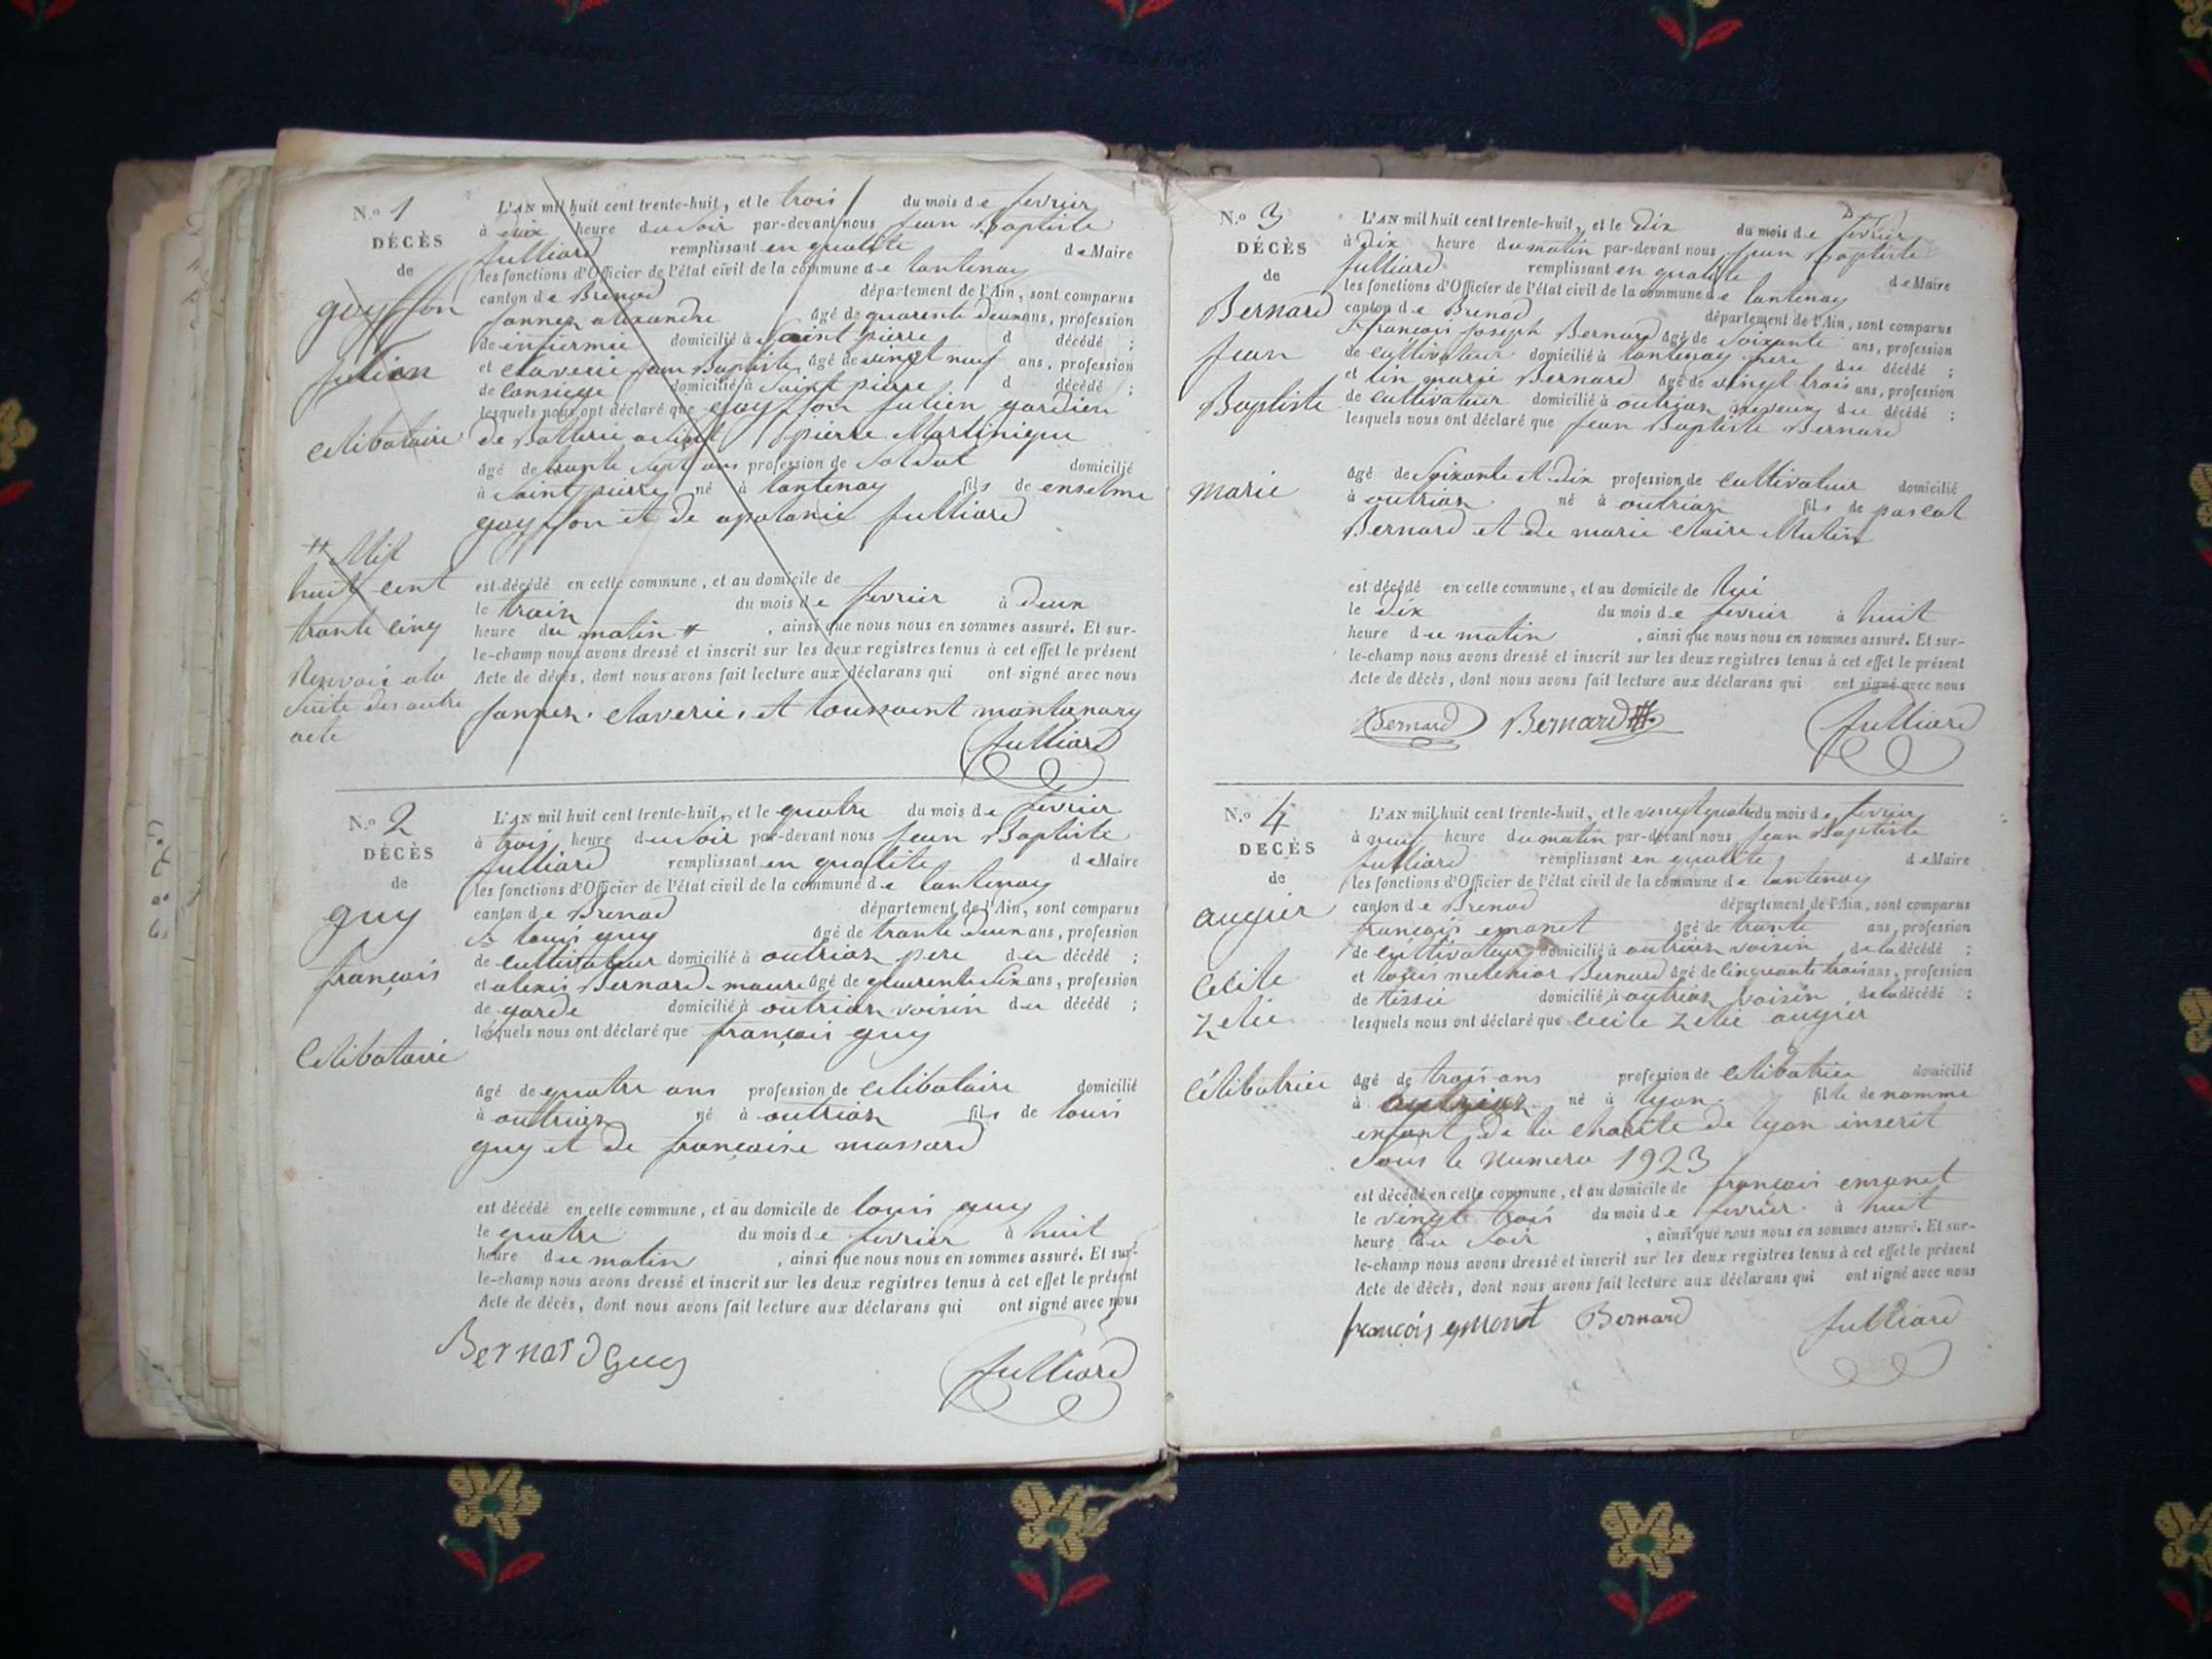 N.o 1
DÉCÈS
de
guyffon
Julien
celibataire
# Mil
huit cent
trante cinq
Renvoié a la
suite des autre
acte
L'AN mil huit cent trente-huit, et le trois du mois de fevrier
à dix heure du soir par-devant nous Jean Baptiste
Julliard remplissant en qualité de Maire
les fonctions d'Officier de l'état civil de la commune de lantenay
canton de Brenod département de l'Ain, sont comparus
alixandre âgé de quarente deux ans, profession
de infirmié domicilié à Saint pierre d décédé ;
et claverie jean Baptiste âgé de vingt neuf ans, profession
de domicilié à Saint pierre d décédé ;
lesquels nous ont déclaré que guyffon Julien gardien
de Batterie a Saint pierre Martinique
âgé de trante Sept ans profession de Soldat domicilié
à Saint pierre né à lantenay fils de enselme
guyffon et de apolonie Julliard
est décédé en cette commune, et au domicile de
le troix du mois de fevrier à deux
heure du matin # , ainsi que nous nous en sommes assuré. Et sur-
le-champ nous avons dressé et inscrit sur les deux registres tenus à cet effet le présent
Acte de décès, dont nous avons fait lecture aux déclarans qui ont signé avec nous
claverie, et toussaint montanary
Julliard
N.o 2
DÉCÈS
de
guy
françois
Celibataire
L'AN mil huit cent trente-huit, et le quatre du mois de fevrier
à trois heure du soir par-devant nous Jean Baptiste
Julliard remplissant en qualité de Maire
les fonctions d'Officier de l'état civil de la commune de lantenay
canton de Brenod département de l'Ain, sont comparus
Sr louis guy âgé de trante deux ans, profession
de cultivateur domicilié à outriaz pere du décédé ;
et alexis Bernard-maure âgé de quarente six ans, profession
de garde domicilié à outriaz voisin du décédé ;
lesquels nous ont déclaré que françois guy
âgé de quatre ans profession de celibataire domicilié
à outriaz né à outriaz fils de louis
guy et de françoise massard
est décédé en cette commune, et au domicile de louis guy
le quatre du mois de fevrier à huit
heure du matin , ainsi que nous nous en sommes assuré. Et sur-
le-champ nous avons dressé et inscrit sur les deux registres tenus à cet effet le présent
Acte de décès, dont nous avons fait lecture aux déclarans qui ont signé avec nous
Bernard Guy
Julliard
N.o 3
DÉCÈS
de
Bernard
jean
Baptiste
marie
L'AN mil huit cent trente-huit, et le Dix du mois de fevrier
à Dix heure du matin par-devant nous Jean Baptiste
Julliard remplissant en qualité de Maire
les fonctions d'Officier de l'état civil de la commune de lantenay
canton de Brenod département de l'Ain, sont comparus
Sr françois Joseph Bernard âgé de Soixante ans, profession
de cultivateur domicilié à lantenay frere du décédé ;
et lin marie Bernard âgé de vingt trois ans, profession
de cultivateur domicilié à outriaz neveux du décédé ;
lesquels nous ont déclaré que Jean Baptiste Bernard
âgé de Soixante et dix profession de cultivateur domicilié
à outriaz né à outriaz fils de pascal
Bernard et de marie claire Mulin
est décédé en cette commune, et au domicile de lui
le dix du mois de fevrier à huit
heure du matin , ainsi que nous nous en sommes assuré. Et sur-
le-champ nous avons dressé et inscrit sur les deux registres tenus à cet effet le présent
Acte de décès, dont nous avons fait lecture aux déclarans qui ont signé avec nous
Bernard Bernard Julliard
N.o 4
DECÈS
de
augier
Cecile
Zelie
Célibatrice
L'AN mil huit cent trente-huit, et le vingt quatre du mois de fevrier
à neuf heure du matin par-devant nous Jean Baptiste
Julliard remplissant en qualité de Maire
les fonctions d'Officier de l'état civil de la commune de lantenay
canton de Brenod département de l'Ain, sont comparus
françois emonet âgé de trante ans, profession
de cultivateur domicilié à outriaz voisin de la décédé ;
et louis melchior Bernard âgé de cinquante trois ans, profession
de tissié domicilié à outriaz voisin de la décédé ;
lesquels nous ont déclaré que Cecile Zelie augier
âgé de trois ans profession de celibatrice domicilié
à outriaz né à lyon fille de nomme
enfant de la charité de lyon inscrit
Sous le numero 1923
est décédé en cette commune, et au domicile de françois emonet
le vingt trois du mois de fevrier à huit
heure du Soir , ainsi que nous nous en sommes assuré. Et sur-
le-champ nous avons dressé et inscrit sur les deux registres tenus à cet effet le présent
Acte de décès, dont nous avons fait lecture aux déclarans qui ont signé avec nous
françois emonet Bernard Julliard